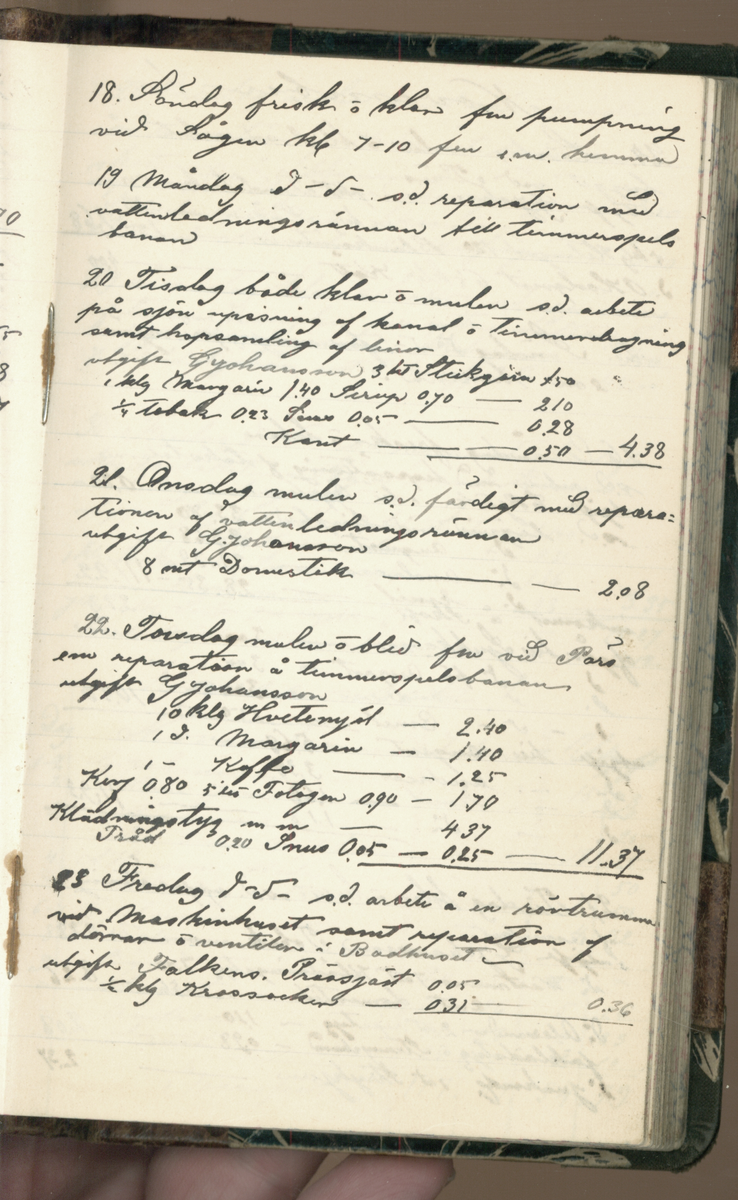 18. Söndag frisk o klar fm pumpning
vid Sågen kl 7-10 fm e.m. hemma
19 Måndag d-d- s.d. reparation med
vattenledningsrännan till timmerspels
banan
20 Tisdag både klar o mulen s.d. arbete
på sjön upisning af kanal o timmerbogning
samt hopsamling af linor
utgift G Johansson 3 1.50
1 klg Margarin 1.40 Sirap 0.70 — 2.10
tobak 0.23 Snus 0.05 — 0.28
Kant — 0.50 — 4.38
21. Onsdag mulen s.d. färdigt med repara=
tionen af vattenledningsrännan
utgift G. Johansson
8 mt Domestik — — 2.08
22. Torsdag mulen o blid fm vid Pärs
em reparation å timmerspelsbanan
utgift G Johansson
10 klg Hvetemjöl — 2.40
1 d. Margarin — 1.40
1 - Kaffe — - 1.25
Korf 0.80 5 Fotogen 0.90 — 1.70
Klädningstyg m m — 4.37
Tråd 0.20 Snus 0.05 — 0.25 — 11.37
23 Fredag d-d- s.d. arbete å en rörtrumma
vid Maskinhuset samt reparation af
dörrar o ventiler i Badhuset
utgift Falkens. Prässjäst 0.05
½ klg Krossocker — 0.31 0.36